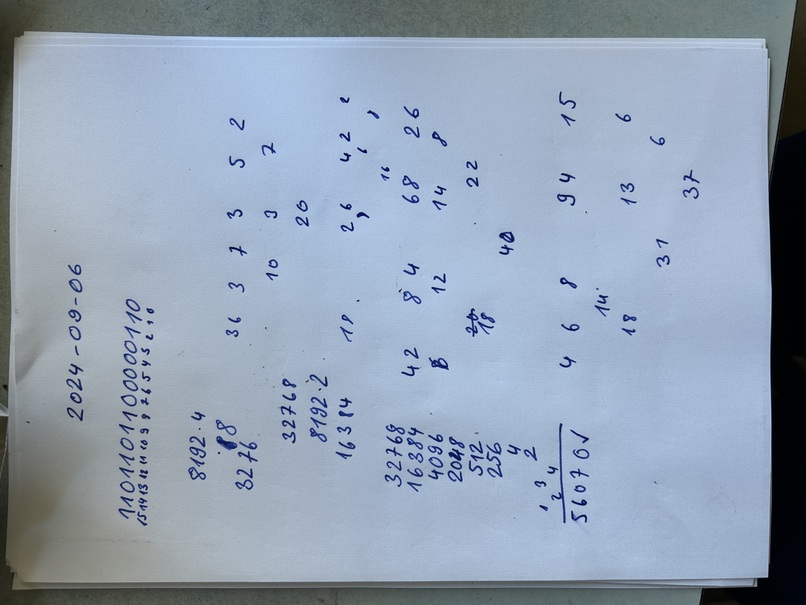 2024-09-06
1101101100000110
15 14 13 12 11 10 9 8 7 6 5 4 3 2 1 0
8192·4
·8
3276
36 3 7 3 5 2
10 3 7
32768
20
8192·2
16384
18 2 6 4 2 2
8 6 8
16
32768
16384
42 84 68 26
4096
6 12 14 8
2048
512
20 22
18
256
4
40
2
1 3
2 4
56070✓
4 6 8 94 15
14
18 13 6
31 6
37